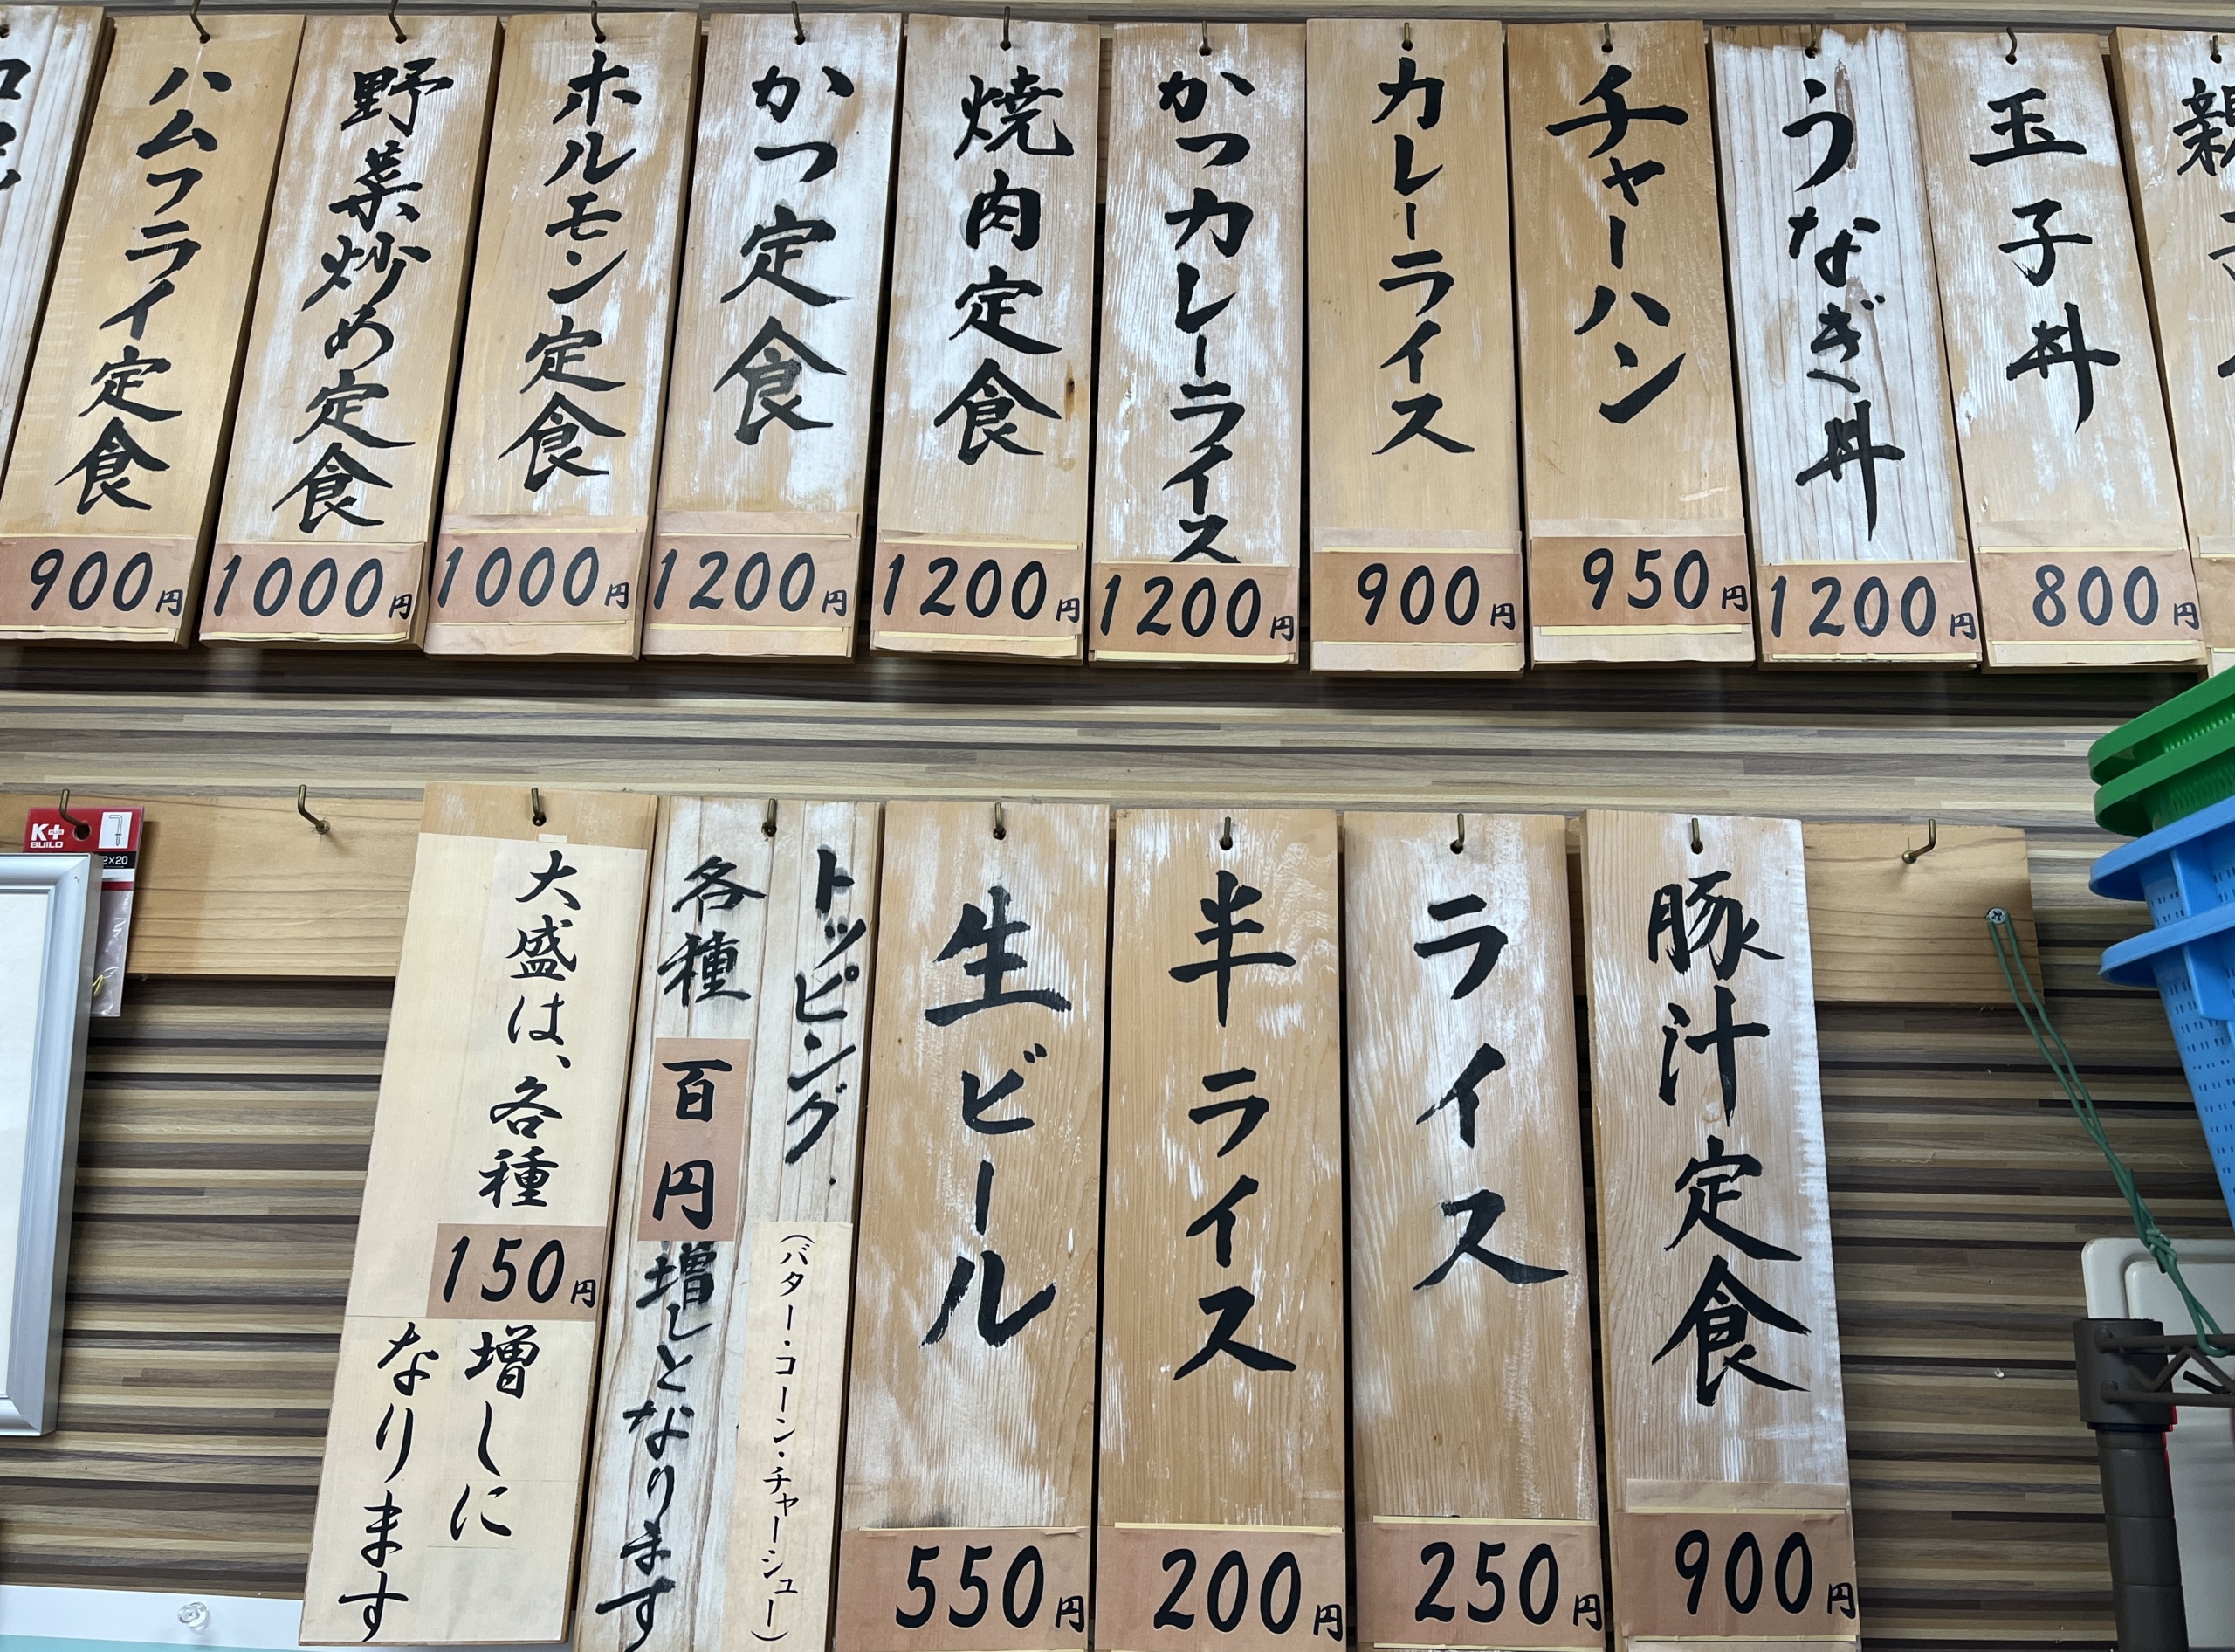 玉子丼
800円
うなぎ丼
1200円
チャーハン
950円
カレーライス
900円
かつカレーライス
1200円
焼肉定食
1200円
かつ定食
1200円
ホルモン定食
1000円
野菜炒め定食
1000円
ハムフライ定食
900円
豚汁定食
900円
ライス
250円
半ライス
200円
生ビール
550円
トッピング.
(バター・コーン・チャーシュー)
各種百円増しとなります
大盛は、各種150円増しに
なります
K+
BUILD
2×20